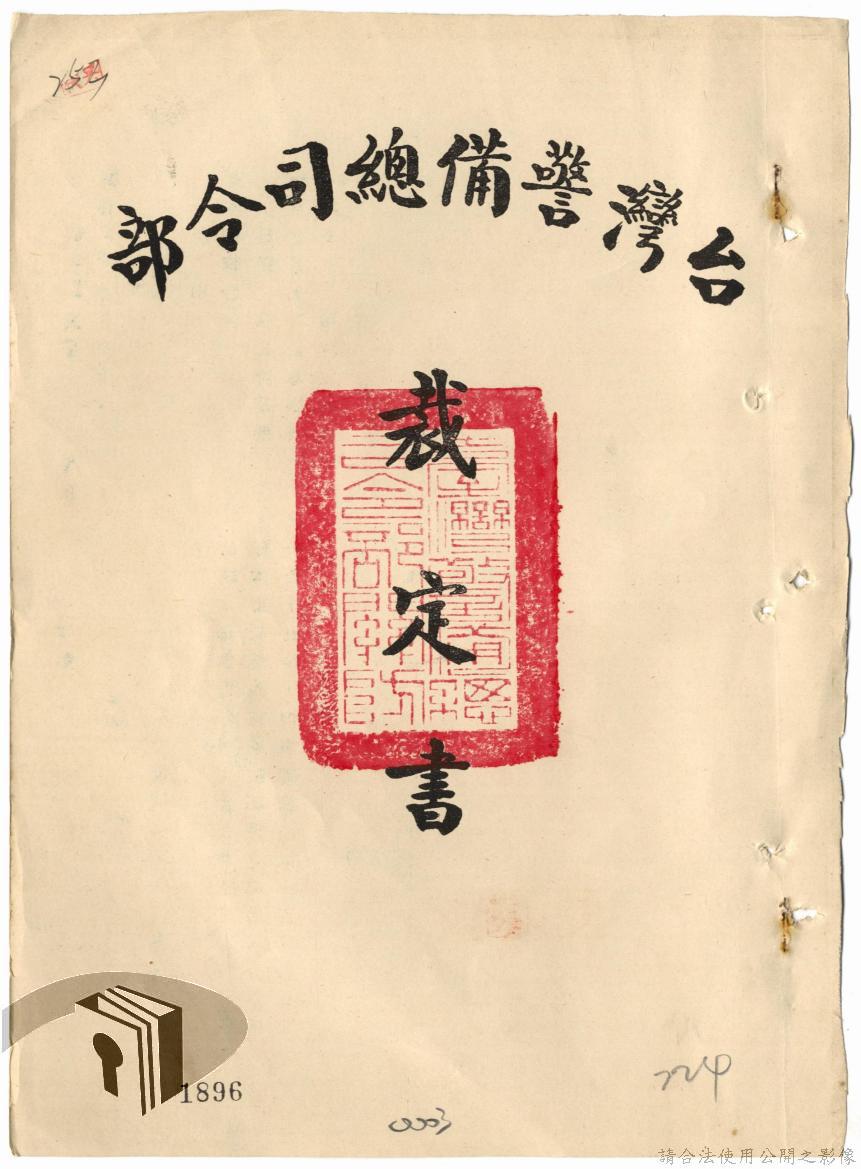 台灣警備總司令部
裁定書
1896
224
0003
請合法使用公開之影像